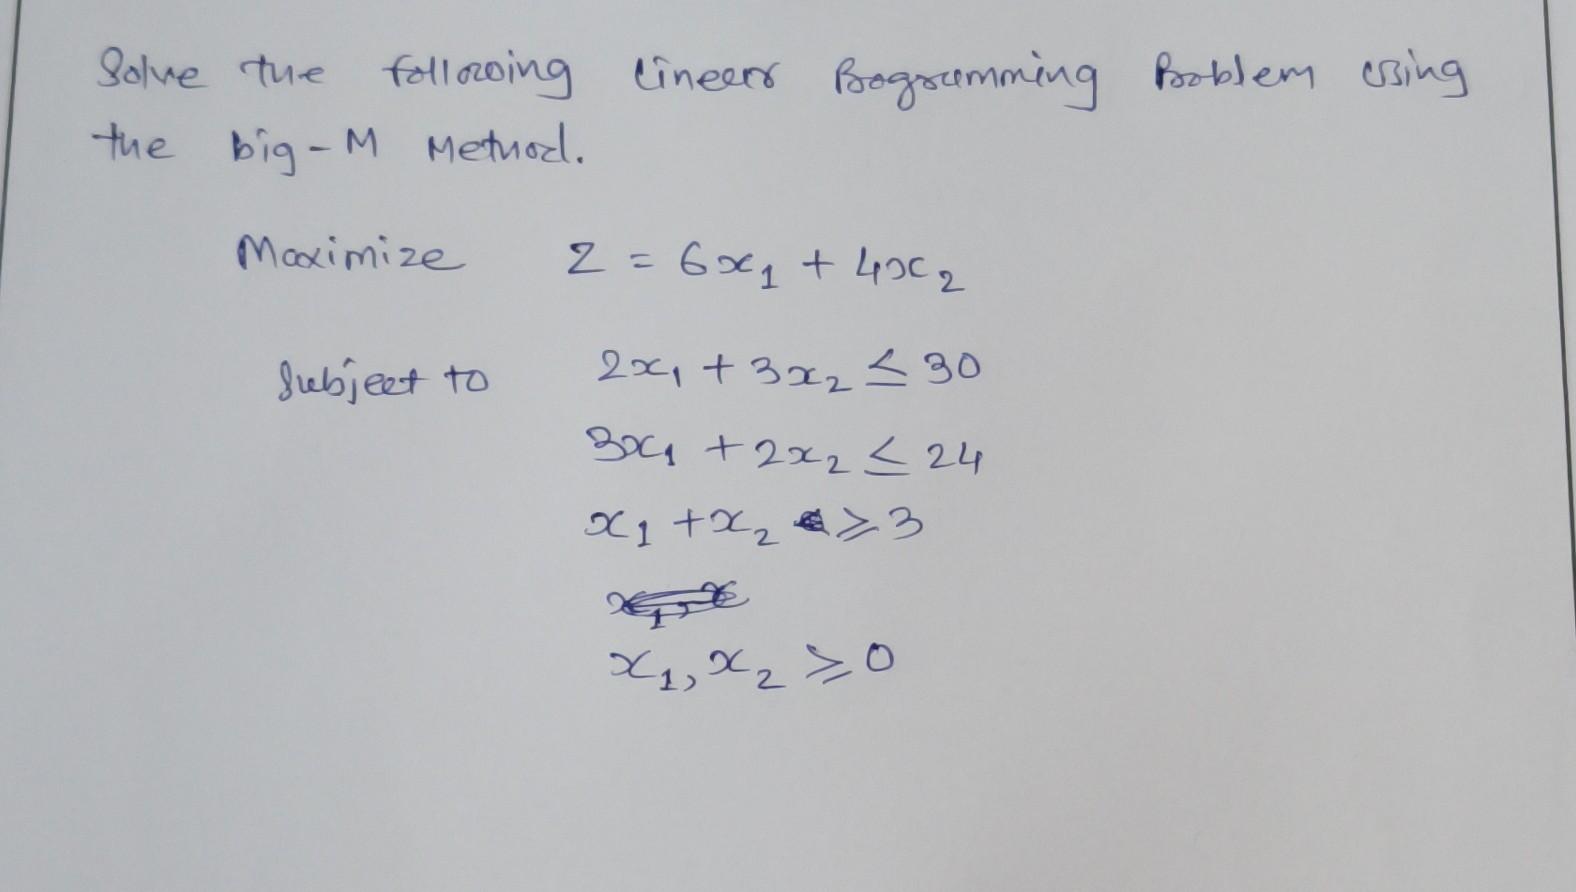 Solve the following Linear Programming Problem using
the big-M Method.
Maximize Z = 6x₁ + 4x₂
Subject to 2x₁ + 3x₂ ≤ 30
3x₁ + 2x₂ ≤ 24
x₁ + x₂ ≥ 3
x₁, x₂ ≥ 0